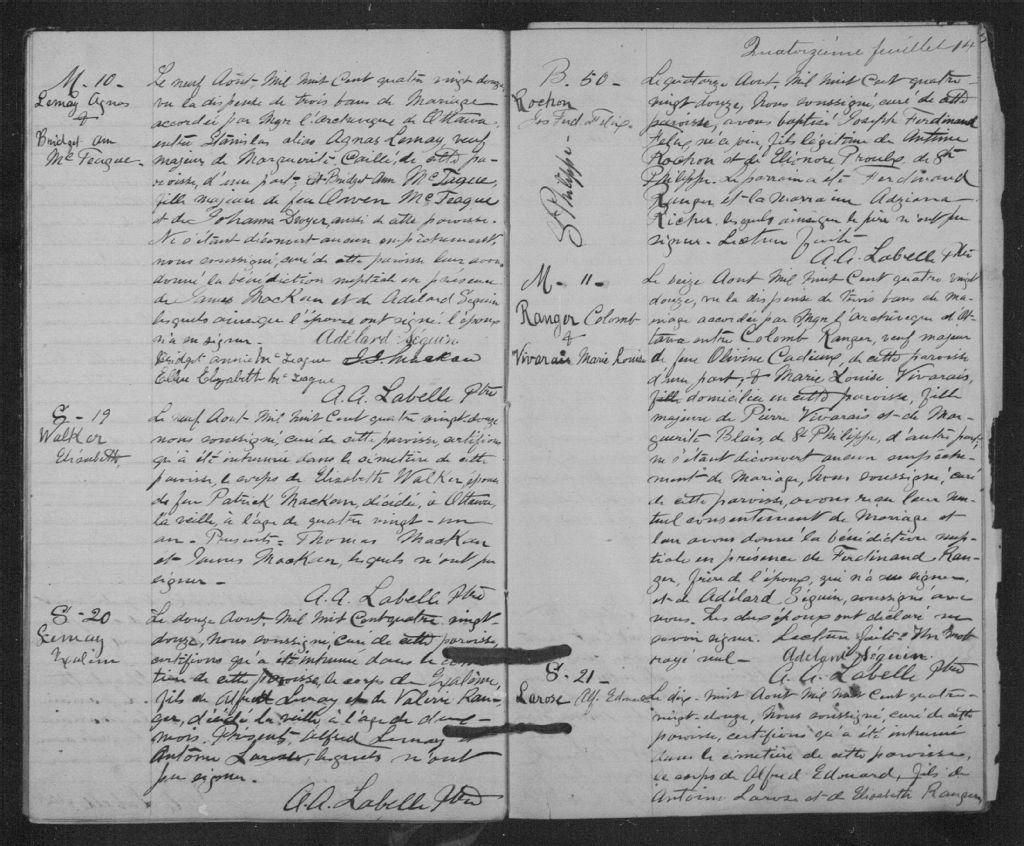 M. 10 -
Lemay Agnas
&
Bridget ann
McTeague -
Le neuf Août Mil huit Cent quatre vingt douze
vu la dispense de trois bans de Mariage
accordée par Mgr l'Archevêque de Ottawa
entre Stanislas alias Agnas Lemay, veuf
majeur de Marguerite Caillé, de cette pa-
roisse, d'une part, et Bridget Ann McTague,
fille majeure de feu Owen McTeague
et de Johanna Dwyer, aussi de cette paroisse.
Ne s'étant découvert aucun empêchement,
nous soussigné, curé de cette paroisse leur avons
donné la bénédiction nuptiale en présence
de James Mackan et de Adélard Séguin
lesquels ainsi que l'épouse ont signé. l'époux
n'a su signer -
Adélard Séguin
Bridget annie McTeague J. J. Mackan
Ellen Elizabeth McTeague
A. A. Labelle Ptre
S - 19
Walker
Elisabeth
Le neuf Aout Mil huit Cent quatre vingt-douze
nous soussigné, curé de cette paroisse certifions
qu'a été inhumée dans le cimetière de cette
paroisse, le corps de Elisabeth Walker, épouse
de feu Patrick Mackan, décédée, à Ottawa,
la veille, à l'âge de quatre vingt-un
an - Présents = Thomas Mackan
et James Mackan, lesquels n'ont pu
signer -
A. A. Labelle Ptre
S - 20
Lemay
Exalém
Le douze Aout Mil huit Cent quatre vingt-
douze, Nous soussigné, curé de cette paroisse,
certifions qu'a été inhumé dans le cime-
tière de cette paroisse, le corps de
fils de Alfred Lemay et de Valérie Ran-
ger, décédé la veille à l'âge de
mois. Présents, Alfred Lemay &
Antoine Larose, lesquels n'ont
pu signer.
A. A. Labelle Ptre
Quatorzième feuillet 14
B. 50 -
Rochon
Jos Ferd. Felix
St Philippe -
Le quatorze Aout, Mil huit Cent quatre-
vingt douze, Nous soussigné, curé de cette
paroisse, avons baptisé Joseph Ferdinand
Felix, né à jour, fils légitime de Antoine
Rochon et de Eléonore Proulx, de St
Philippe. Le parrain a été Ferdinand
Ranger et la marraine
Richer, lesquels ainsi que le père n'ont pu
signer - Lecture faite
A. A. Labelle Ptre
M - 11 -
Ranger Colomb
&
Vivarais Marie Louise
Le seize Aout Mil huit Cent quatre vingt
douze, vu la dispense de trois bans de ma-
riage accordée par Mgr l'Archevêque d'Ot-
tawa entre Colomb Ranger, veuf majeur
de feue Olivine Cadieux, de cette paroisse
d'une part, & Marie Louise Vivarais,
fille domiciliée en cette paroisse, fille
majeure de Pierre Vivarais et de Mar-
guerite Blais, de St Philippe, d'autre part,
ne s'étant découvert aucun empêche-
ment de Mariage, Nous soussigné, curé
de cette paroisse, avons reçu leur mu-
tuel consentement de Mariage et
leur avons donné la bénédiction nup-
tiale en présence de Ferdinand Ran-
ger, frère de l'époux, qui n'a su signer,
et de Adélard Séguin, soussigné avec
nous. Les dits époux ont déclaré ne
savoir signer. Lecture faite. Un mot
rayé nul - Adélard Séguin
A. A. Labelle Ptre
S. 21 -
Larose Alf. Edouard
Le dix-huit Aout Mil huit Cent quatre-
vingt-douze, Nous soussigné, curé de cette
paroisse, certifions qu'a été inhumé
dans le cimetière de cette paroisse,
le corps de Alfred Edouard, fils de
Antoine Larose et de Elisabeth Ranger,